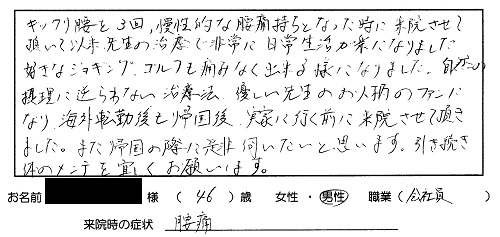 ギックリ腰を3回,慢性的な腰痛持ちとなった時に来院させて
頂いて以来先生の治療で非常に日常生活が楽になりました
好きなジョギング、ゴルフも痛みなく出来る様になりました。自然の
摂理に逆らわない治療法、優しい先生のお人柄のファンに
なり、海外転勤後も帰国後、実家に行く前に来院させて頂き
ました。また帰国の際に是非伺いたいと思います。引き続き
体のメンテを宜しくお願います。
お名前 様 (46)歳 女性・男性 職業(会社員)
来院時の症状 腰痛